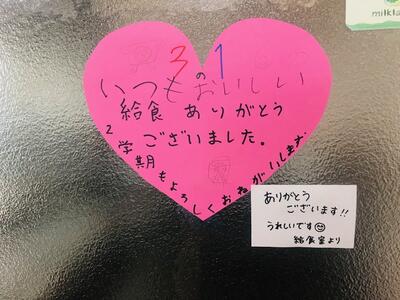 3の1
いつもおいしい
給食 ありがとう
ございました。
2学期もよろしくおねがいします。
ありがとう
ございます!!
うれしいです☺
給食室より